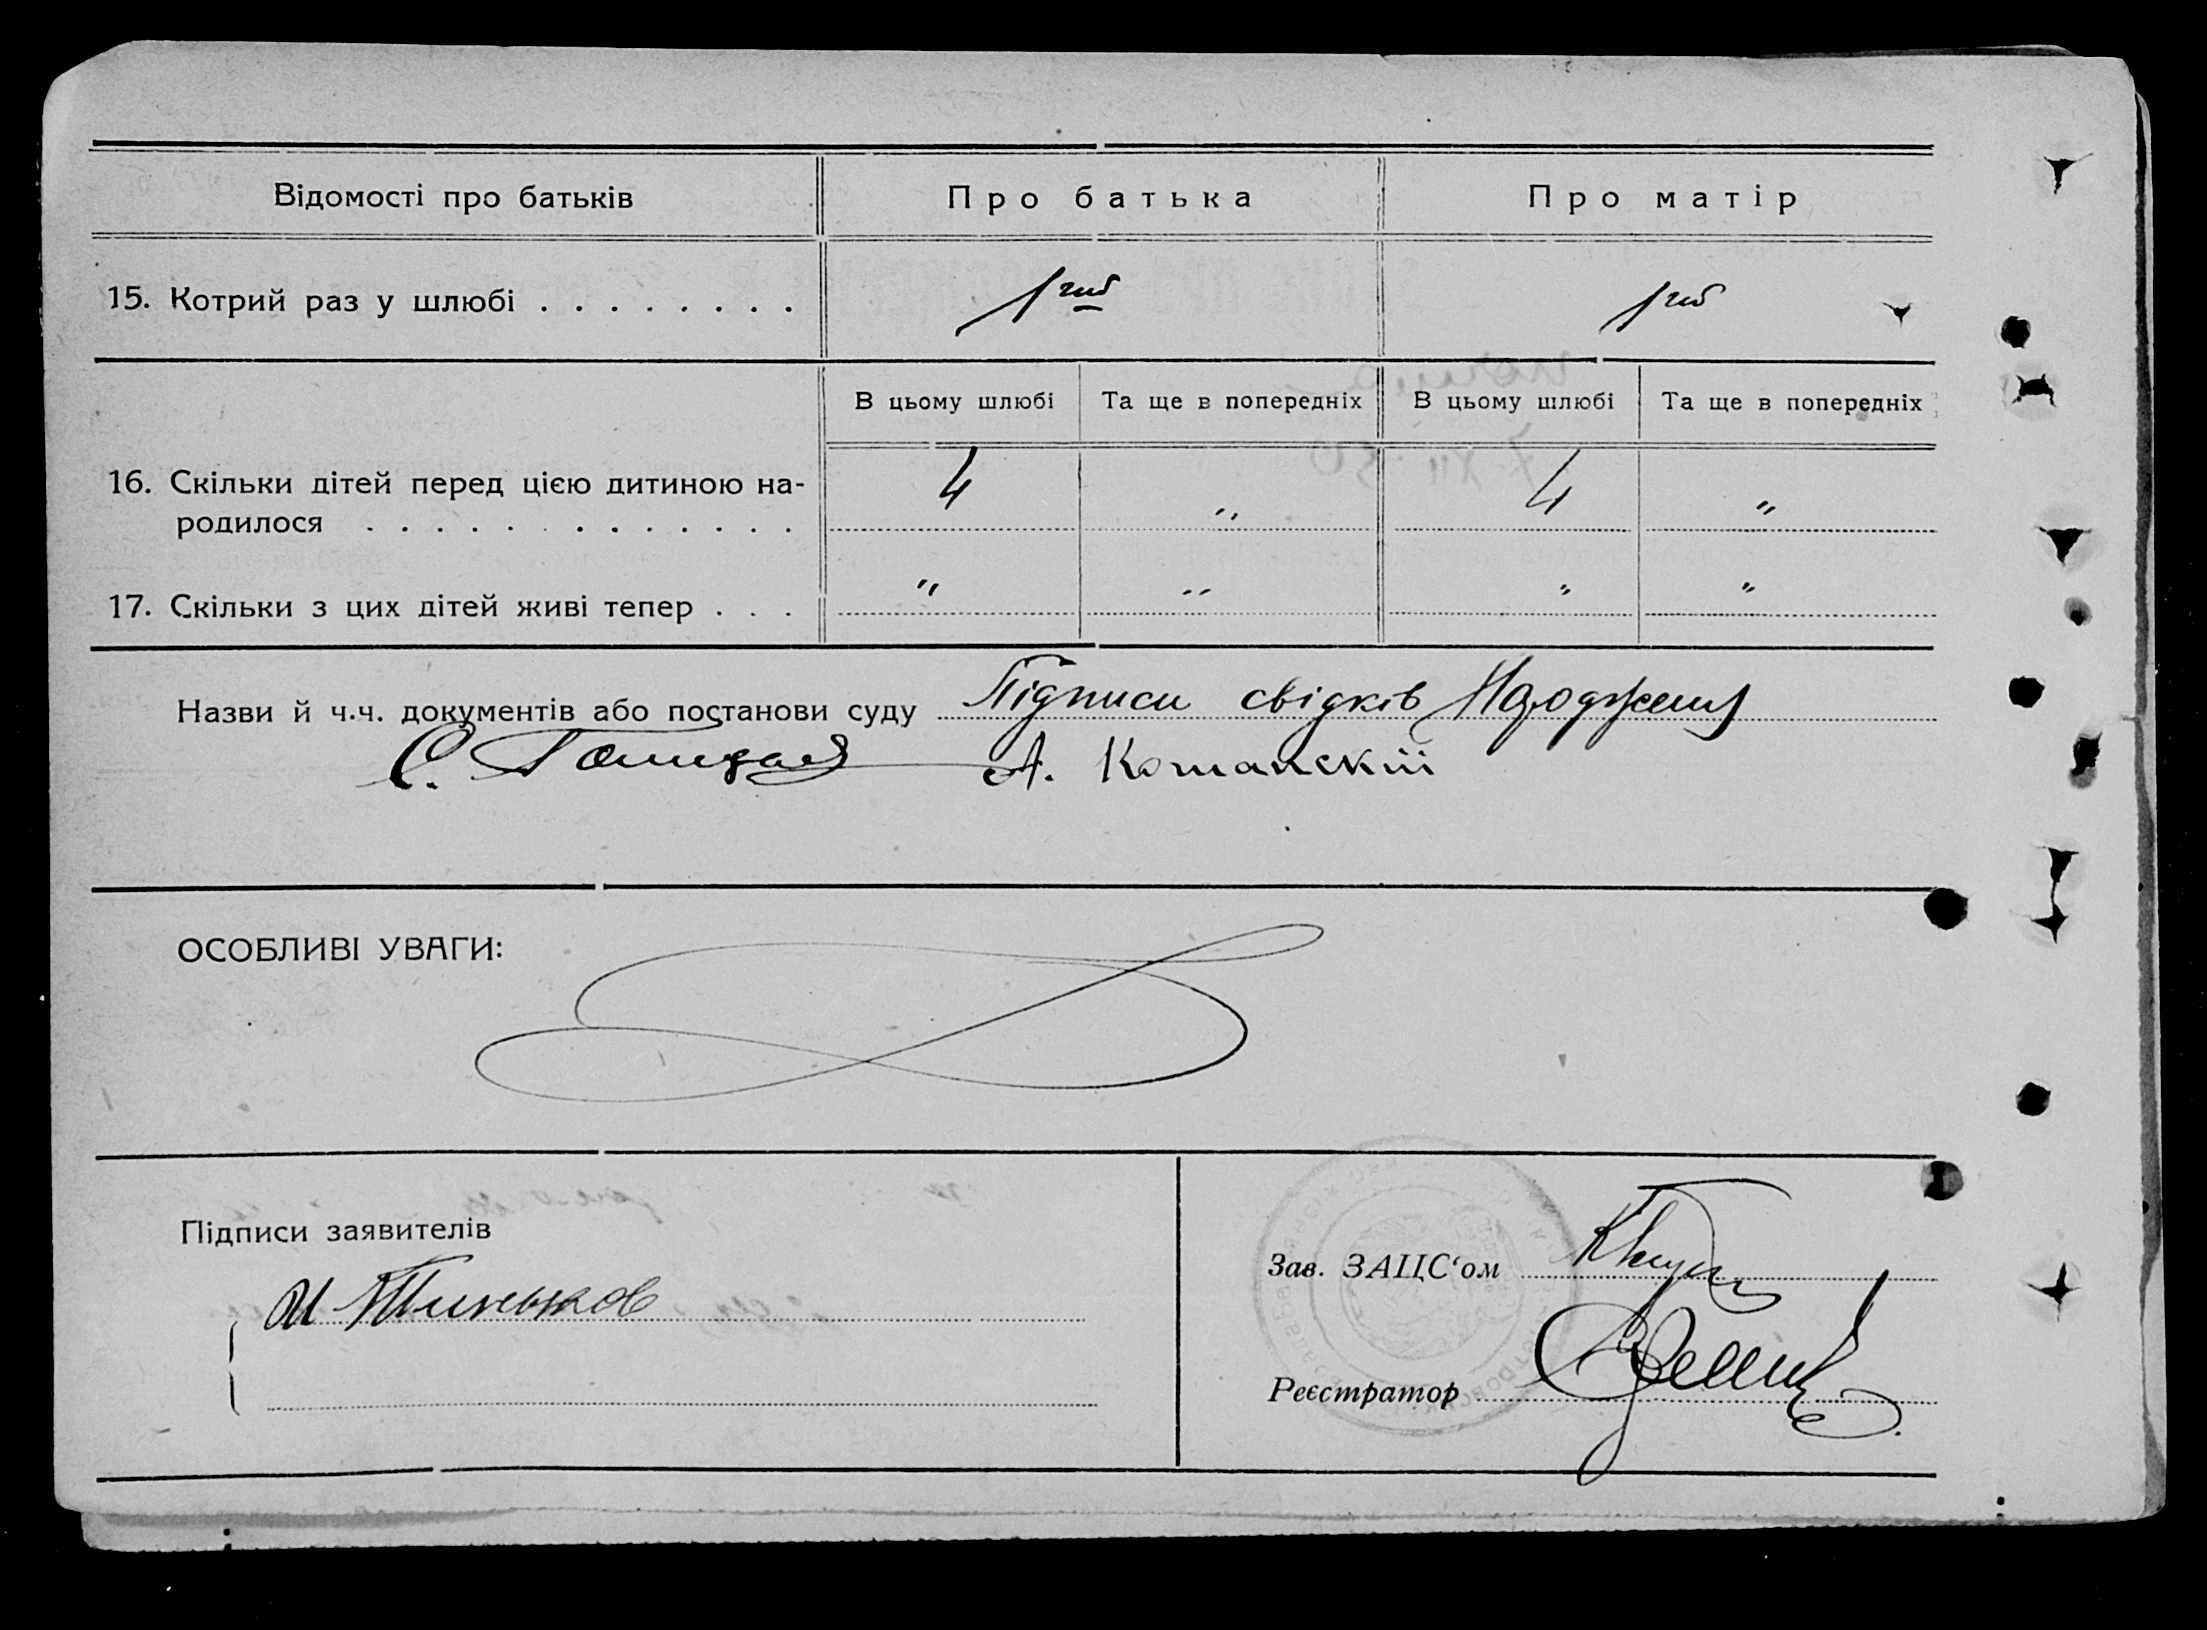 Відомості про батьків Про батька Про матір
15. Котрий раз у шлюбі . . . . . . . . 1ий 1ий
В цьому шлюбі Та ще в попередніх В цьому шлюбі Та ще в попередніх
16. Скільки дітей перед цією дитиною на- 4 " 4 "
родилося . . . . . . . . . . . . .
17. Скільки з цих дітей живі тепер . . . " " " "
Назви й ч.ч. документів або постанови суду Підписи свідків
С. А. Кошанский
ОСОБЛИВІ УВАГИ:
Підписи заявителів
Зав. ЗАЦС‘ом
Реєстратор